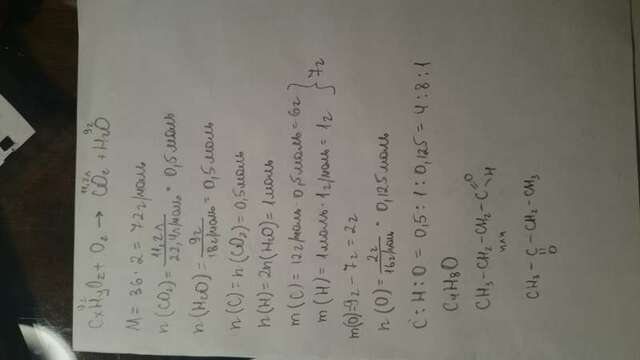 9г 11,2л 9г
CxHyOz + O2 → CO2 + H2O
M = 36 · 2 = 72 г/моль
n(CO2) = 11,2л / 22,4 л/моль = 0,5 моль
n(H2O) = 9г / 18г/моль = 0,5 моль
n(C) = n(CO2) = 0,5 моль
n(H) = 2n(H2O) = 1 моль
m(C) = 12г/моль · 0,5 моль = 6г } 7г
m(H) = 1 моль · 1 г/моль = 1г
m(O) = 9г - 7г = 2г
n(O) = 2г / 16г/моль = 0,125 моль
C : H : O = 0,5 : 1 : 0,125 = 4 : 8 : 1
C4H8O
CH3 - CH2 - CH2 - C =O - H
или
CH3 - C - CH2 - CH3
||
O